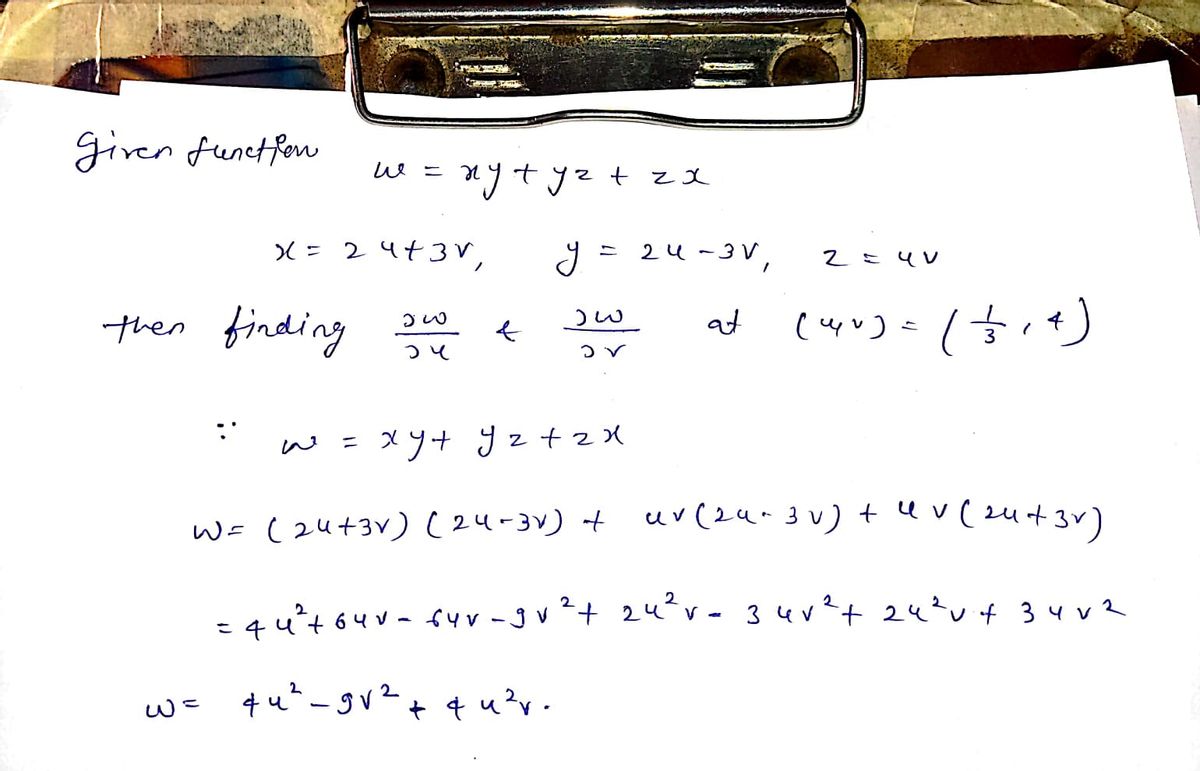 Given function w = xy + yz + zx
x = 2u+3v, y = 2u-3v, z = uv
then finding ∂w/∂u & ∂w/∂v at (u,v) = (1/3, 4)
∵ w = xy + yz + zx
w = (2u+3v) (2u-3v) + uv(2u-3v) + uv(2u+3v)
= 4u² + 6uv - 6uv - 9v² + 2u²v - 3uv² + 2u²v + 3uv²
w = 4u² - 9v² + 4u²v.